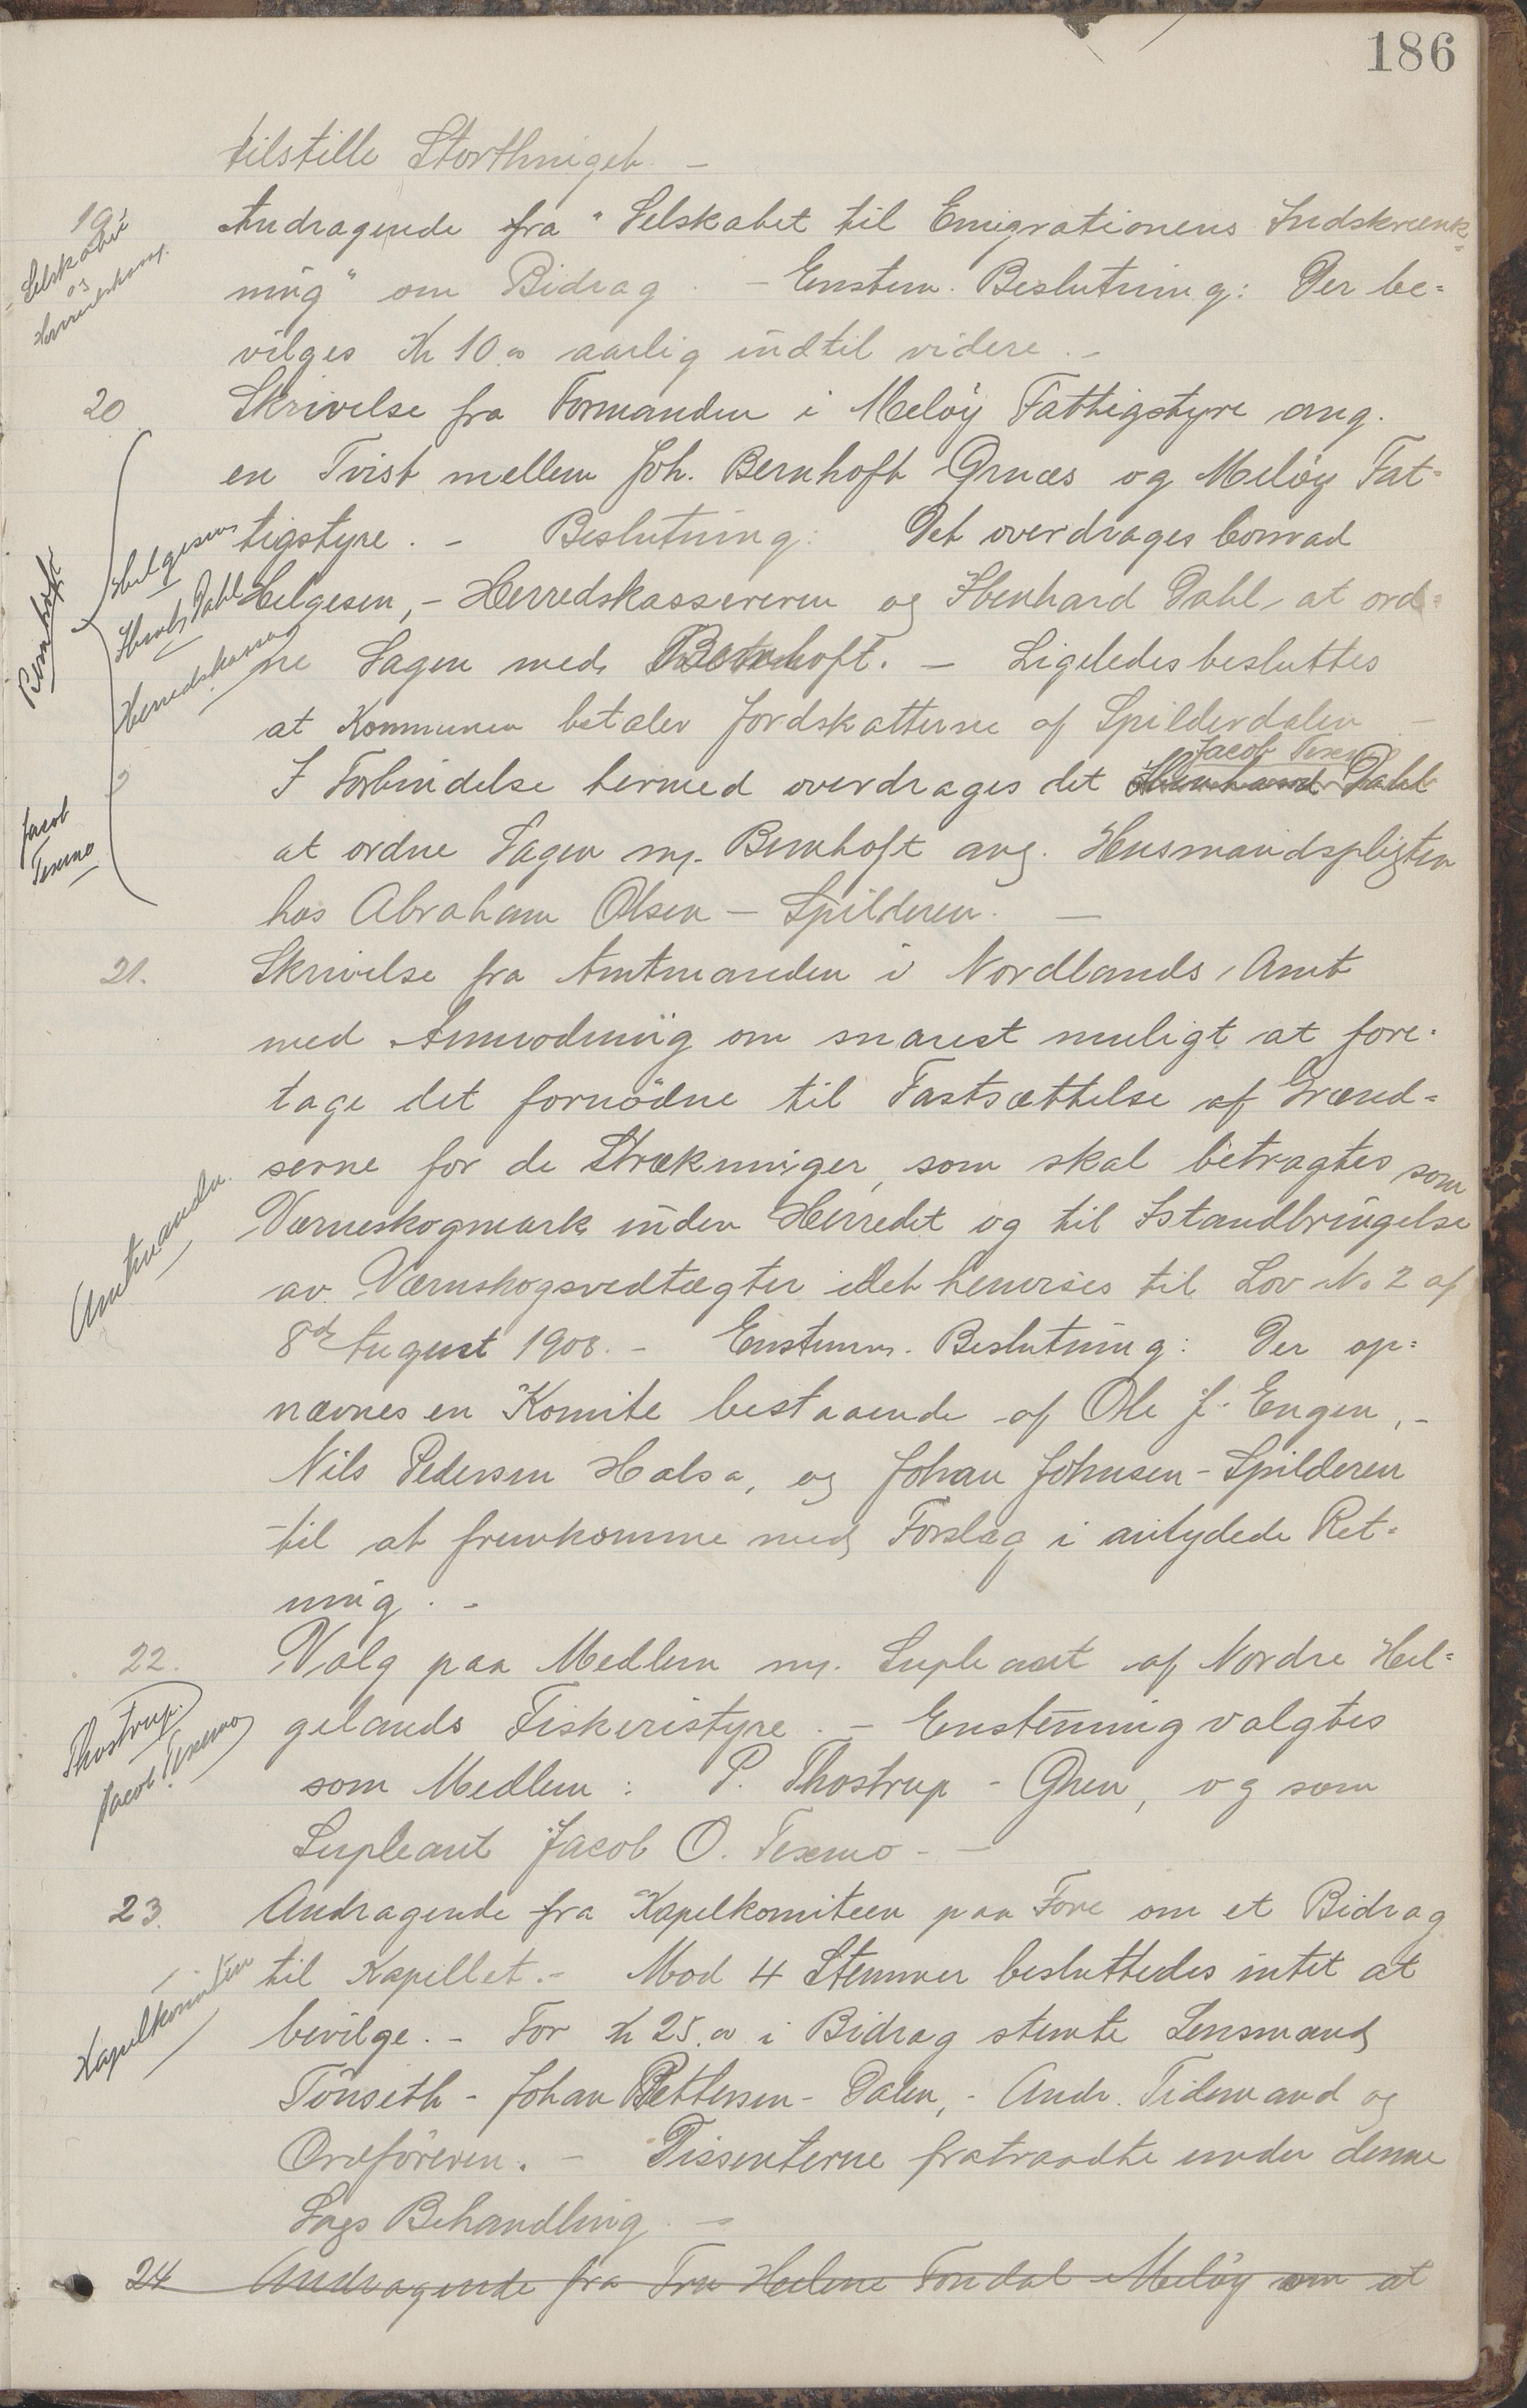 186
tilstille Storthinget. –
19.
Selskabet
og
Herredskass.
Andragende fra "Selskabet til Emigrationens Indskrænk=
ning" om Bidrag. – Enstem. Beslutning: Der be=
vilges Kr 10.00 aarlig indtil videre. –
20
Skrivelse fra Formanden i Meløy Fattigstyre ang.
en Tvist mellem Joh. Bernhoft Ørnæs og Meløy Fat=
tigstyre. – Beslutning: Det overdrages Conrad
Helgesen, – Herredskassereren og Ibenhard Dahl at ord=
ne Sagen med Bernhoft. – Ligeledes besluttes
at Kommunen betaler Jordskatterne af Spilderdalen –
Jacob Texmo
I Forbindelse hermed overdrages det Ibenhard Dahl
at ordne Sagen m. Bernhoft ang. Husmandspligten
hos Abraham Olsen – Spilderen. –
Bernhoft
Helgesen
Ibenh. Dahl
Herredskasser
Jacob
Texmo
21.
Skrivelse fra Amtmanden i Nordlands Amt
med Anmodning om snarest muligt at fore=
tage det fornödne til Fastsættelse af Grænd=
serne for de Strækninger, som skal betragtes som
Værneskogmark inden Herredet og til Istandbringelse
av Værnskogsvedtægter idet henvises til Lov No 2 af
8de August 1908. – Enstemm. Beslutning: Der op=
nævnes en Komite bestaaende af Ole J. Engen, –
Nils Pedersen Halsa, og Johan Johnsen – Spilderen
til at fremkomme med Forslag i antydede Ret=
ning. –
Amtmanden.
22.
Valg paa Medlem m. Supleant af Nordre Hel=
gelands Fiskeristyre. – Enstemmig valgtes
som Medlem: P. Thostrup – Grøn, og som
Supleant Jacob O. Texmo – –
Thostrup.
Jacob Texmo
23.
Andragende fra Kapelkomiteen paa Fore om et Bidrag
til Kapellet. – Mod 4 Stemmer besluttedes intet at
bevilge. – For Kr 25.00 i Bidrag stemte Lensmand
Tönseth – Johan Pettersen – Dalen, – Andr. Tidemand og
Ordföreren. – Dissenterne fratraadte under denne
Sags Behandling. –
Kapelkomiteen
24
Andragende fra Fru Helene Fondal Meløy om at